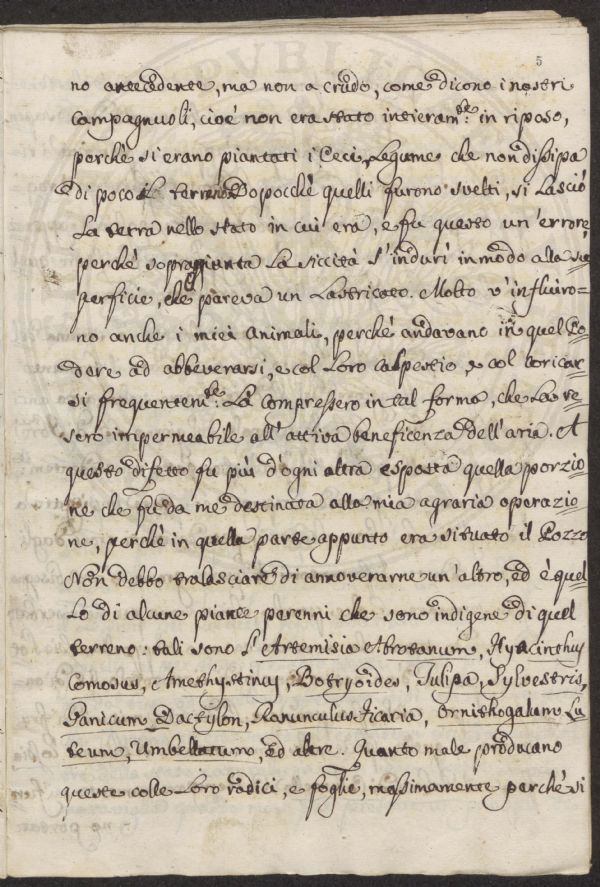 5
no antecedente, ma non a crudo, come dicono i nostri
campagnuoli, cioè non era stato intieram.te in riposo,
perchè si erano piantati i Ceci, Legume che non dissipa
di poco il terreno. Dopocchè quelli furono svelti, si lasciò
la terra nello stato in cui era, e fu questo un'errore,
perchè sopraggiunta la siccità s'indurì in modo alla su=
perficie, che pareva un Lastricato. Molto v'influiro=
no anche i miei animali, perchè andavano in quel Po=
dere ad abbeverarsi, e col loro calpestio, e col coricar=
si frequentem.te la compressero in tal forma, che la re=
sero impermeabile all'attiva beneficenza dell'aria. A
questo difetto fu più d'ogni altra esposta quella porzio=
ne che fu da me destinata alla mia agraria operazio=
ne, perchè in quella parte appunto era situato il Pozzo
Non debbo tralasciare di annoverarne un'altro, ed è quel=
lo di alcune piante perenni che sono indigene di quel
terreno: tali sono l'Artemisia Abrotanum, Hyacinthus
Comosus, Amethystinus, Botryoides, Tulipa Sylvestris,
Panicum Dactylon, Ranunculus Ficaria, Ornithogalum Lu=
teum, Umbellatum, ed altre. Quanto male producano
queste colle loro radici, e foglie, massimamente perchè si